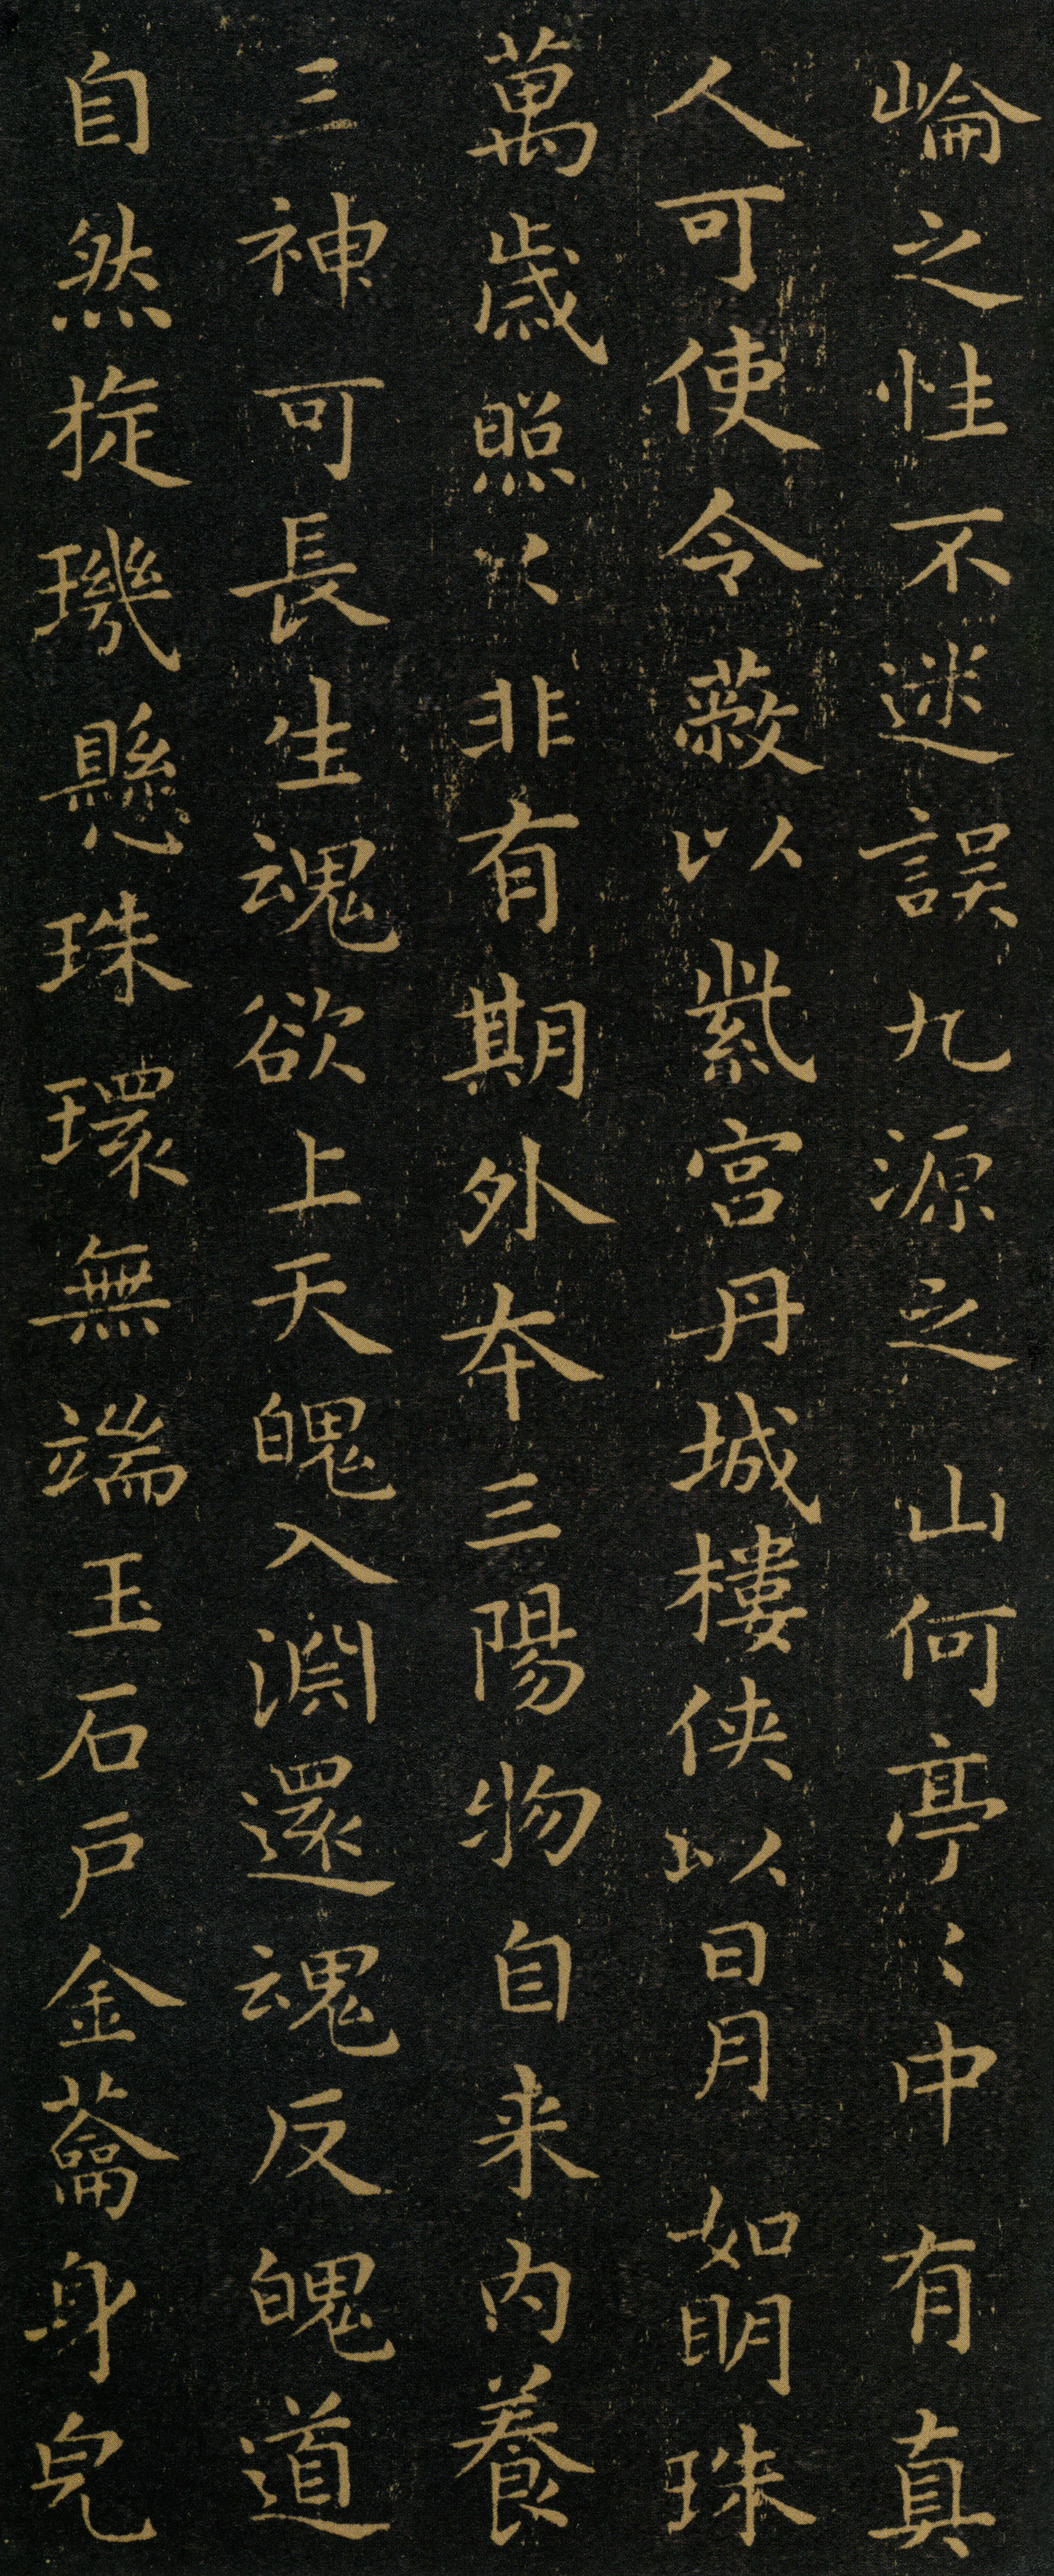 崘之性不迷誤九源之山何亭〻中有真
人可使令蔽以紫宮丹城樓侠以日月如明珠
萬歳照〻非有期外夲三陽物自来内養
三神可長生魂欲上天魄入淵還魂反魄道
自然旋璣懸珠環無端玉石戶金蘥身皃